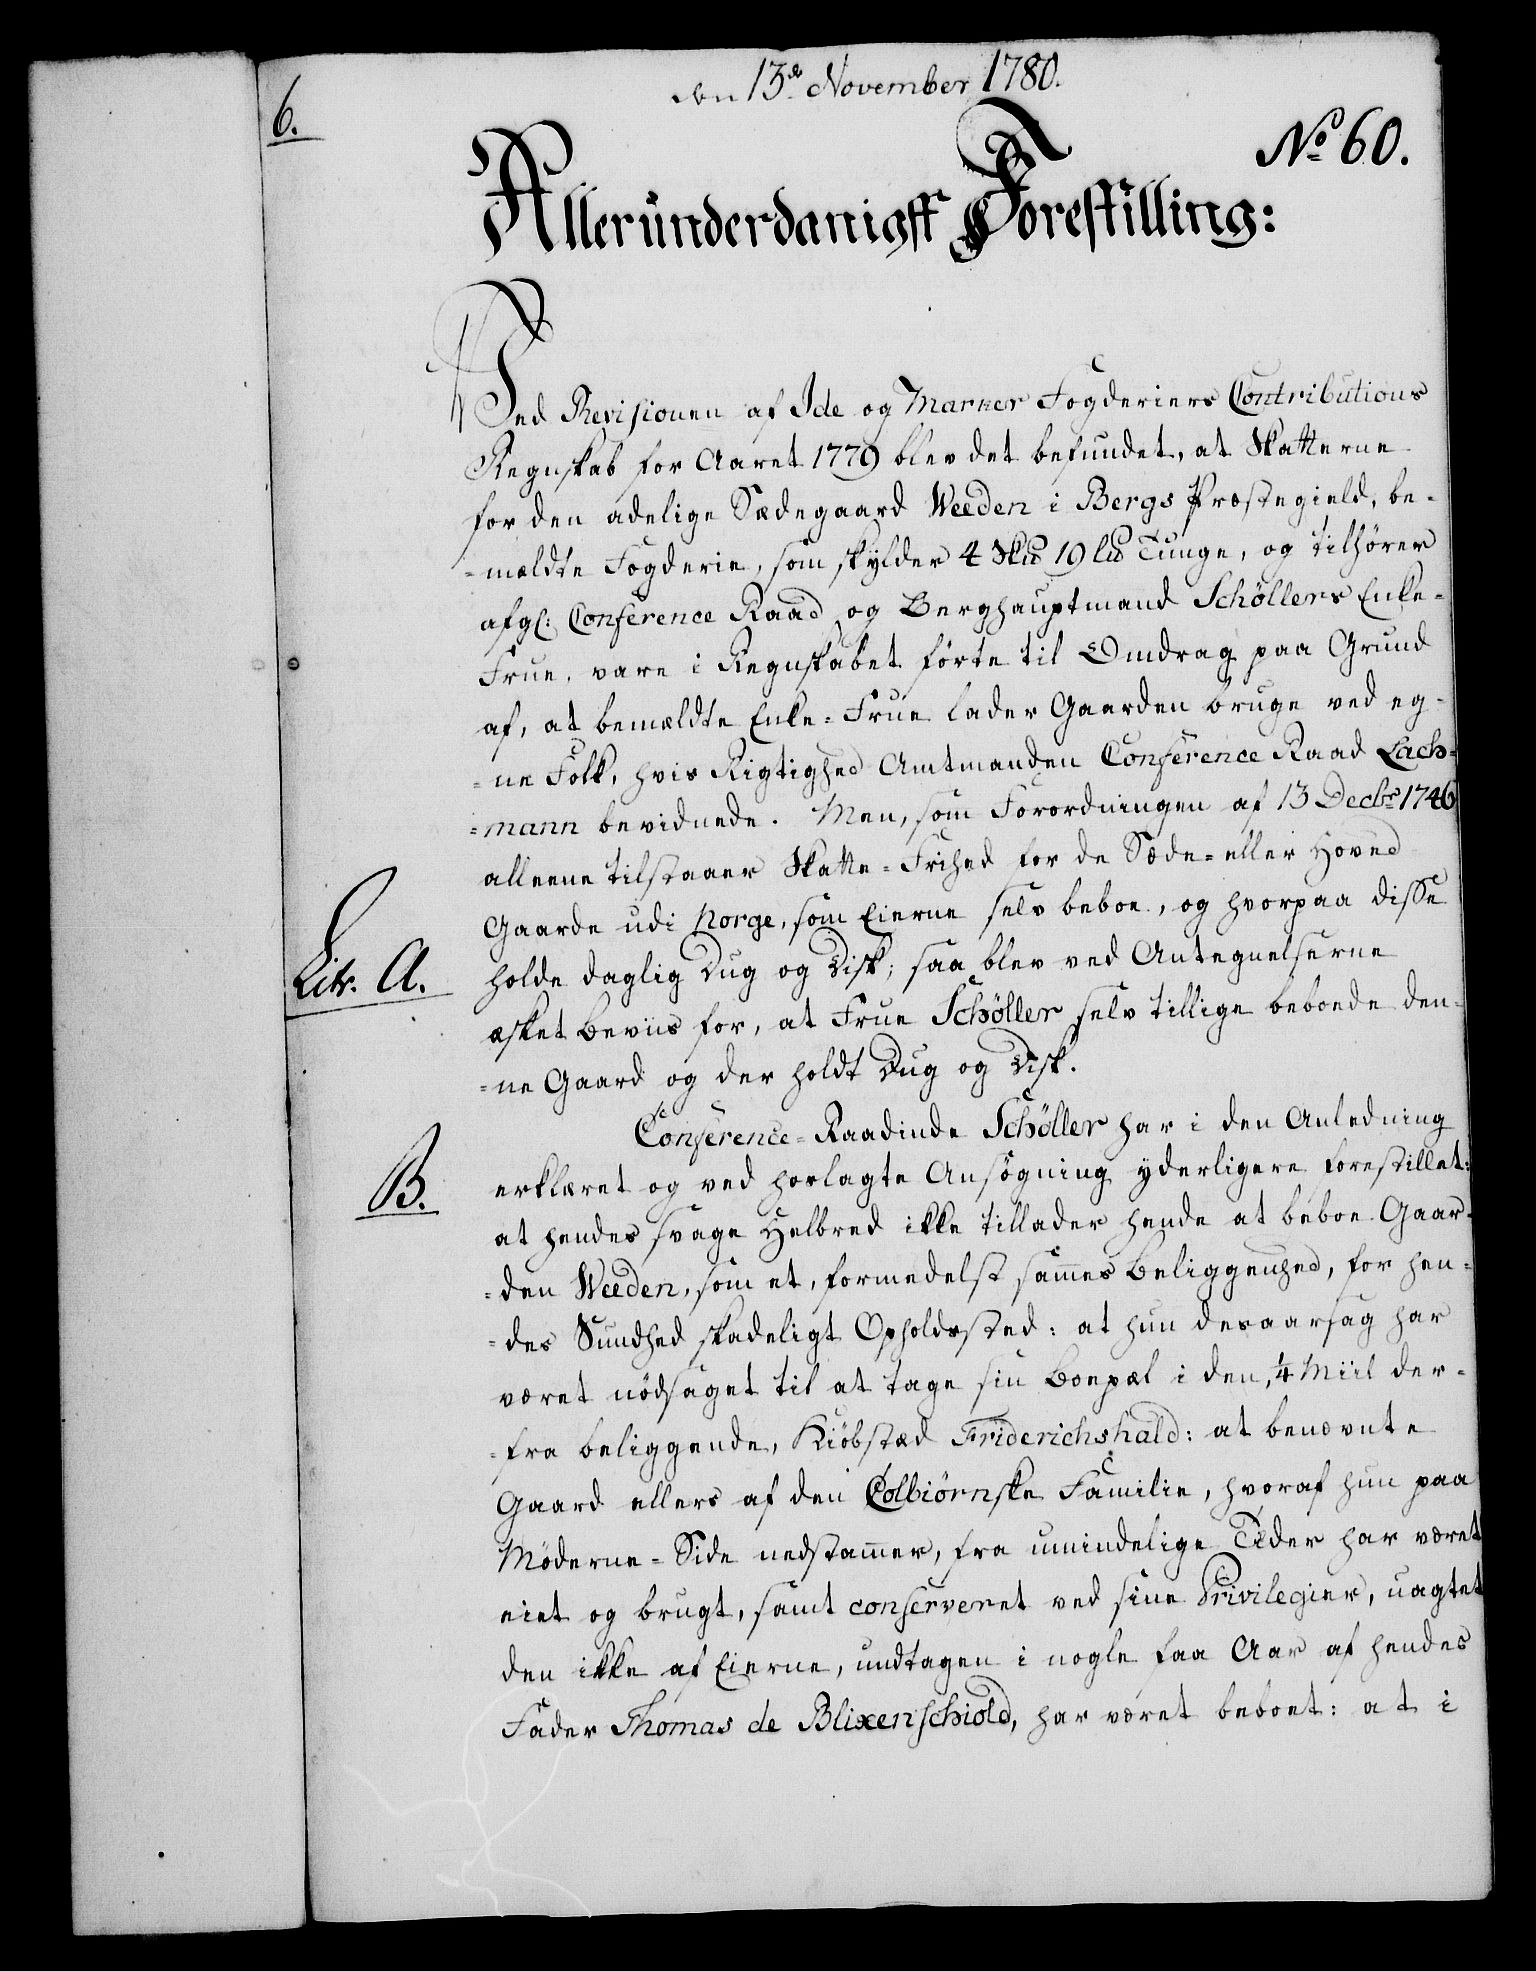 6.
den 13de November 1780.
No 60.
Allerunderdanigst Forestilling:
Ved Revisionen af Ide og Marker Fogderiers Contributions
Regnskab for Aaret 1779 blev det befundet, at Skatterne
for den adelige Sædegaard Weeden i Bergs Præstegield, be-
=mældte Fogderie, som skylder 4 Sk℔ 19 l℔ Tunge, og tilhører
afgl: Conference Raad og Berghauptmand Schöllers Enke=
Frue, vare i Regnskabet førte til Omdrag paa Grund
af, at bemældte Enke=Frue lader Gaarden bruge ved eg-
=ne Folk, hvis Rigtighed Amtmanden Conference Raad Lach=
=mann bevidnede. Men, som Forordningen af 13 Decbr 1746
alleene tilstaaer Skatte=Frihed for de Sæde= eller Hoved
Gaarde udi Norge, som Eierne selv beboe, og hvorpaa disse
Litr. A.
holde daglig Dug og Disk; saa blev ved Antegnelserne
æsket Beviis for, at Frue Schöller selv tillige beboede den-
=ne Gaard og der holdt Dug og Disk.
Conference=Raadinde Schöller har i den Anledning
B.
erklæret og ved hoslagte Ansøgning yderligere forestillet:
at hendes svage Helbred ikke tillader hende at beboe Gaar-
=den Weeden, som et, formedelst sam̄es Beliggenhed, for hen-
=des Sundhed skadeligt Opholdssted: at hun desaarsag har
været nödsaget til at tage sin Boepæl i den, 1/4 Miil der-
=fra beliggende, Kiöbstæd Friderichshald: at benævnte
Gaard ellers af den Colbiørnske Familie, hvoraf hun paa
Möderne=Side nedstam̄er, fra umindelige Tider har været
eiet og brugt, samt conserveret ved sine Privilegier, uagtet
den ikke af Eierne, undtagen i nogle faa Aar af hendes
Fader Thomas de Blixenschiold, har været beboet: at i